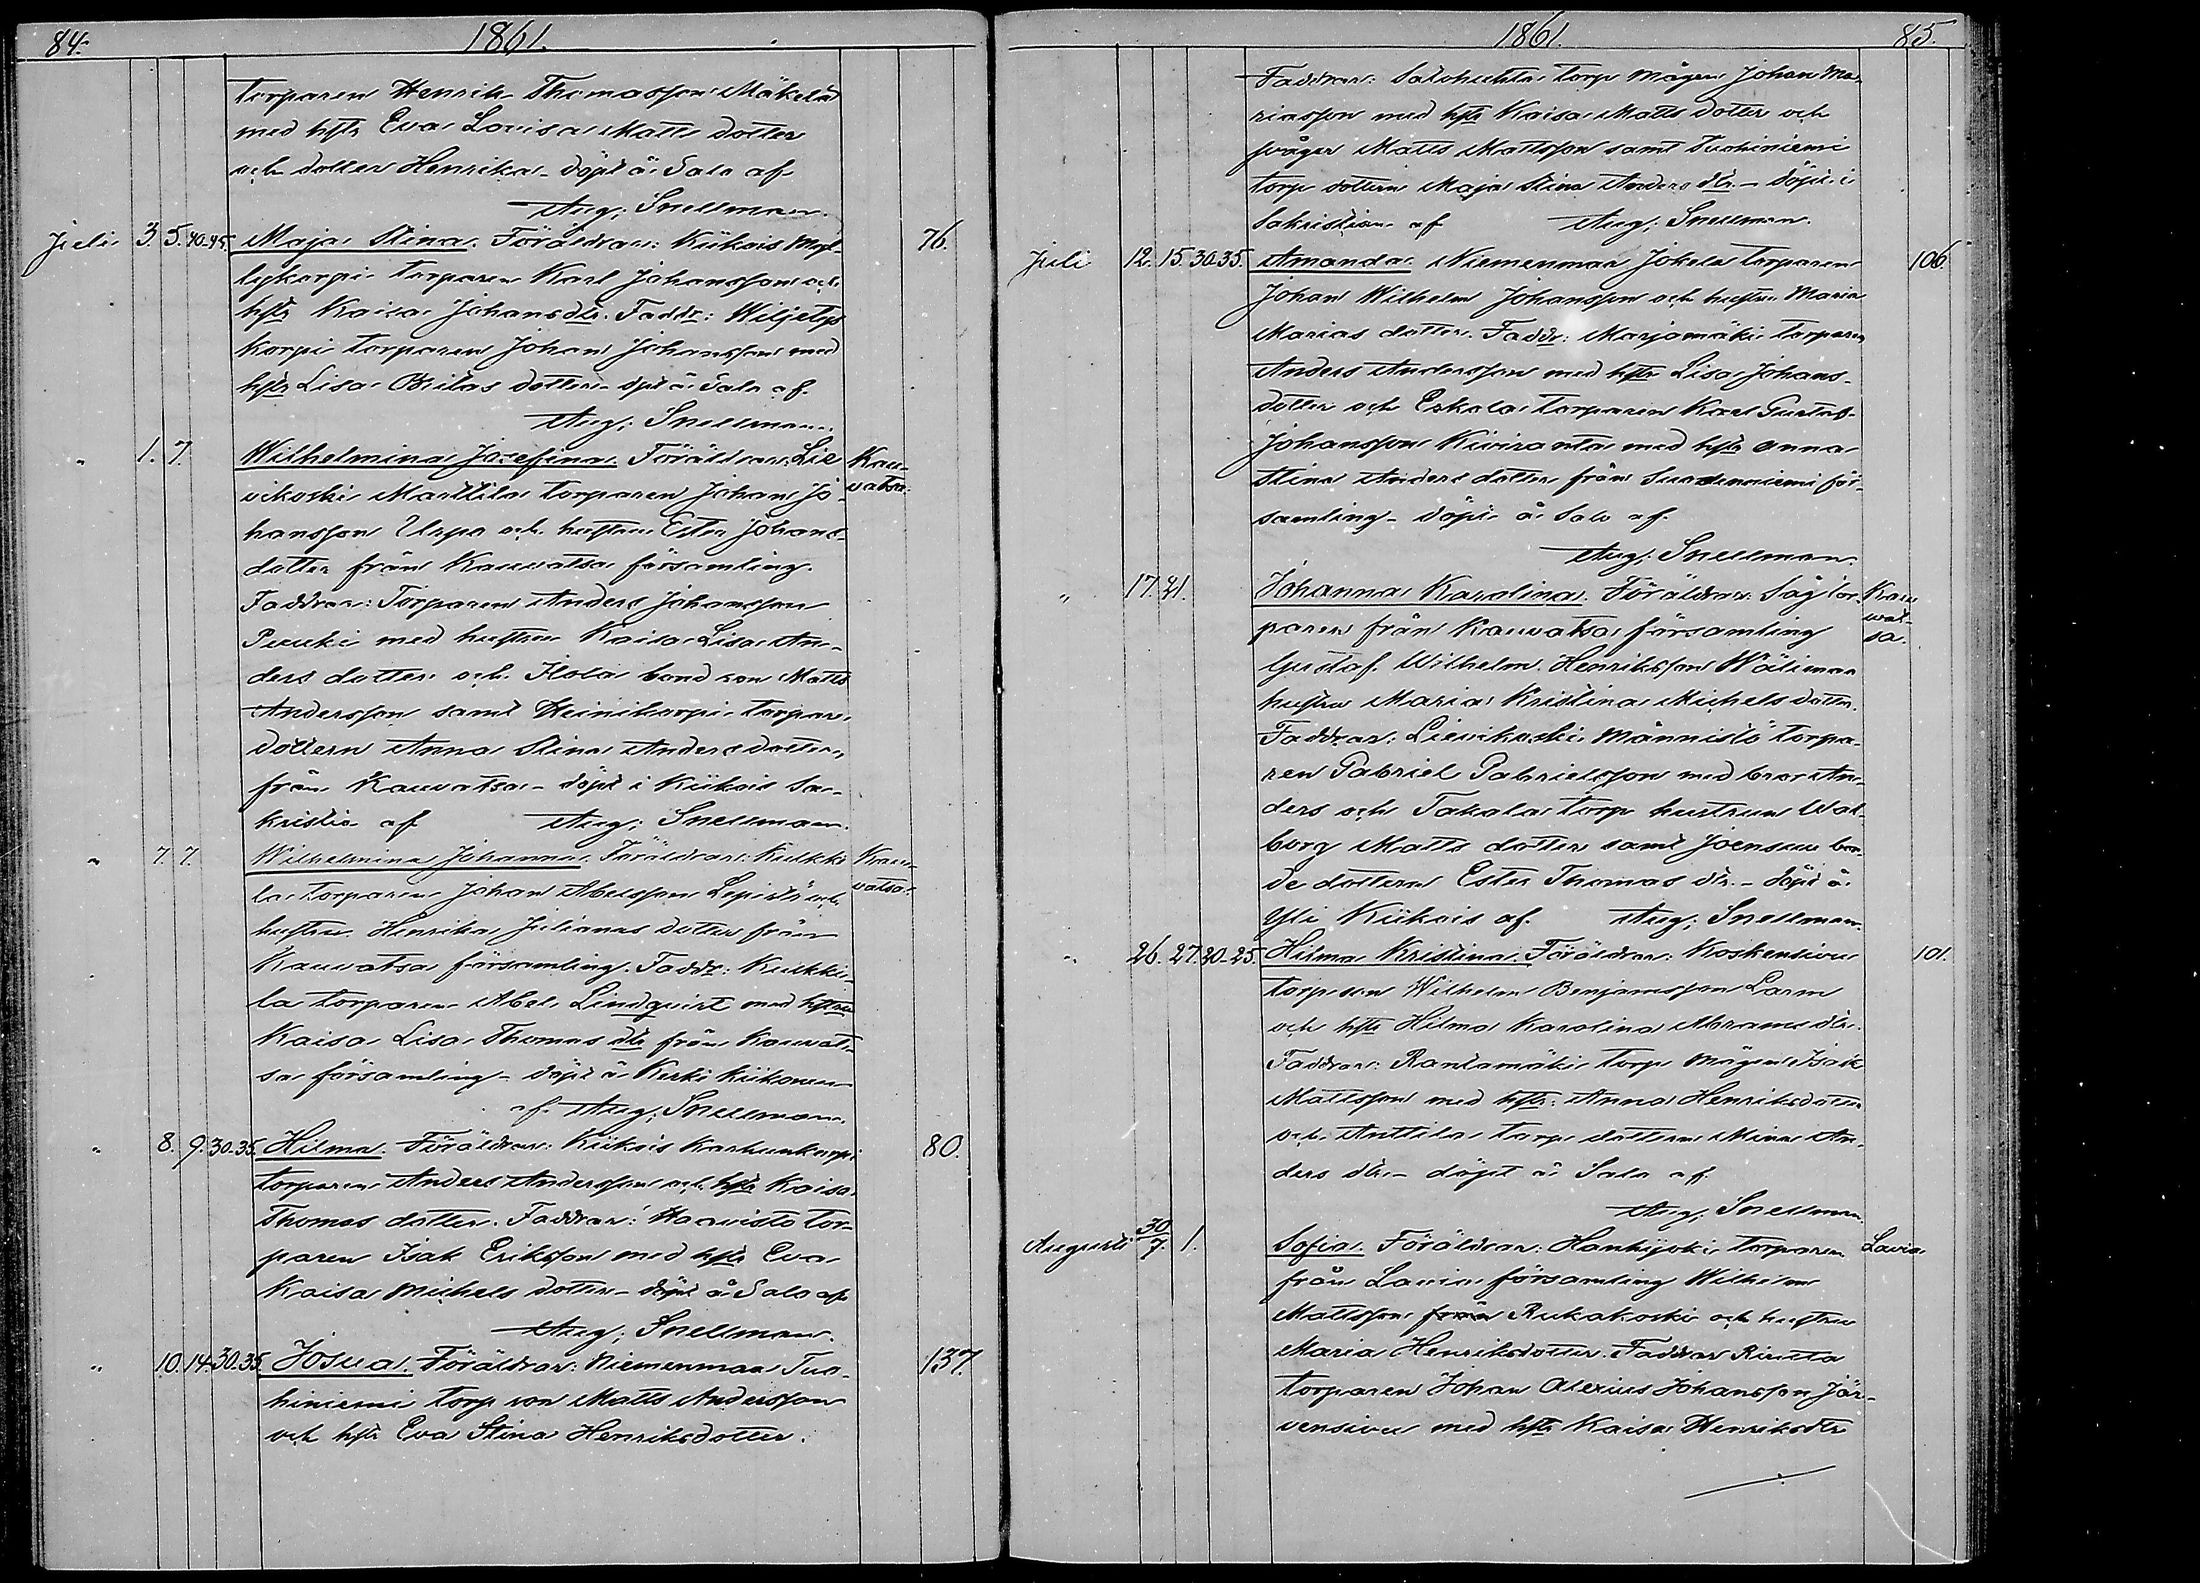 84.
1861.
torparen Henrik Thomasson Mäkelä
med hstr Eva Lovisa Matts dotter
och dotter Henrika - döpt å Salo af
Aug; Snellman.
Juli 3. 5. 40-45. Maja Stina. Föräldrar: Kiikois 76.
torparen Karl Johansson och
hstr Kaisa Johansdtr. Faddr: Wiljetys
korpi torparen Johan Johansson med
hstr Lisa Britas dotter - dpt å Salo af
Aug; Snellman.
" 1. 7. Wilhelmina Josefina. Föräldrar: Lie Kau-
vikoski Marttila torparen Johan Jo- watsa.
hansson Urpa och hustru Ester Johans-
dotter från Kauwatsa församling.
Faddrar: Torparen Anders Johansson
Peuki med hustru Kaisa Lisa An-
ders dotter och Ilola bond son Matts
Andersson samt Heinikorpi torpare
dottern Anna Stina Anders dotter,
från Kauvatsa - döpt i Kiikois Sa-
kristia af Aug; Snellman.
" 7. 7. Wilhelmina Johanna. Föräldrar: Kulkki Kau-
la torparen Johan Abelsson Lepistö och watsa.
hustru Henrika Julianas dotter från
Kauvatsa församling. Faddr: Kulkki-
la torparen Abel Lindqvist med hstru
Kaisa Lisa Thomas dtr från Kauvat-
sa församling - döpt å Keski Kiikonen
af Aug; Snellman.
" 8. 9. 30.35. Hilma. Föräldrar: Kiikois Karhunkorpi 80.
torparen Anders Andersson och hstr Kaisa
Thomas dotter. Faddrar: Haavisto tor-
paren Isak Eriksson med hstr Eva
Kaisa Michels dotter - döpt å Salo af
Aug; Snellman.
" 10. 14. 30.35. Josua. Föräldrar: Niemenmaa Tuo- 137.
hiniemi torp son Matts Andersson
och hstr Eva Stina Henriksdotter.
1861.
85.
Faddrar: torp mågen Johan Ma-
riasson med hstr Kaisa Matts dotter och
svåger Matts Mattsson samt Tuohiniemi
torp dottern Maja Stina Anders dtr. - döpt i
Sakristian af Aug; Snellman.
Juli 12. 15. 30.35. Amanda. Niemenmaa Jokela torparen 106.
Johan Wilhelm Johansson och hustru Maria
Marias dotter. Faddr: Marjamäki torparen
Anders Andersson med hstr Lisa Johans-
dotter och Eskola torparen Karl Gustaf
Johansson Kiviranta med hstr Anna
Stina Anders dotter från Suodenniemi för-
samling - döpt å Salo af
Aug; Snellman.
" 17. 21. Johanna Karolina. Föräldrar: Såg tor- Kau
paren från Kauvatsa församling wat-
Gustaf Wilhelm Henriksson Wälimaa sa.
hustru Maria Kristina Michels dotter.
Faddrar: Lievikoski Männistö torpa-
ren Gabriel Gabrielsson med bror An-
ders och Takala torp hustrun Wal-
borg Matts dotter samt Joensuu bon-
de dottern Ester Thomas dtr. - döpt å
Yli Kiikois af Aug; Snellman.
" 26. 27. 20-25. Hilma Kristina. Föräldrar: Koskensivu 101.
torp son Wilhelm Benjamsson Larm
och hstr Hilma Karolina Abrams dtr.
Faddrar: Rantamäki torp mågen Isak
Mattsson med hstr: Anna Henriksdotter
och Anttila torp dottern Mina An-
ders dtr - döpt å Salo af
Aug; Snellman.
Augusti 30/7. 1. Sofia. Föräldrar: Hanhijoki torparen Lavia
från Lavia församling Wilhelm
Mattsson från Rukakoski och hustru
Maria Henriksdotter. Faddrar
torparen Johan Alexius Johansson Jär-
vensivu med hstr Kaisa Henriksdtr